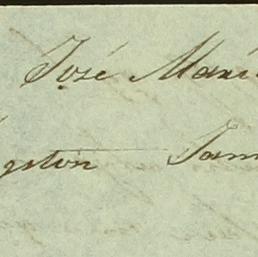 José Marí
gston Jam